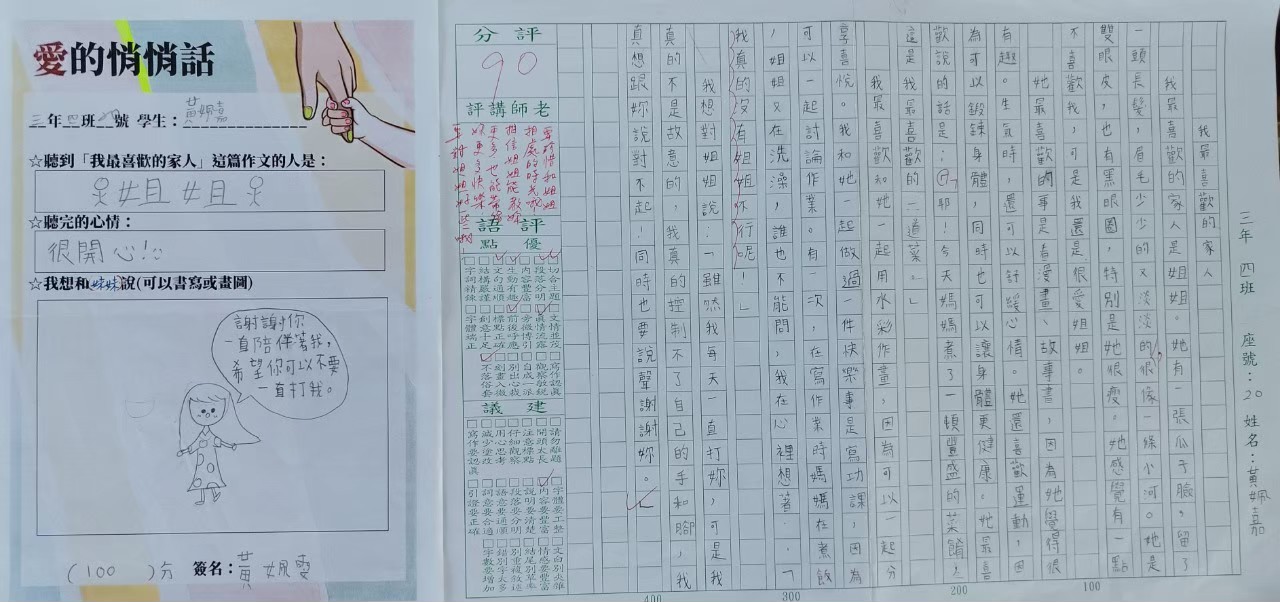 愛的悄悄話
三年四班 號 學生：黃姵嘉
☆聽到「我最喜歡的家人」這篇作文的人是：
姐姐
☆聽完的心情：
很開心!!
☆我想和妹妹說(可以書寫或畫圖)
謝謝你
一直陪伴著我，
希望你可以不要
一直打我。
(100 )分 簽名：黃姵雯
三年 四班 座號：20 姓名：黃姵嘉
我最喜歡的家人
我最喜歡的家人是姐姐。她有一張瓜子臉，留了
一頭長髮，眉毛少少的又淡淡的，很像一條小河。她是
雙眼皮，也有黑眼圈，特別是她很瘦。她感覺有一點
不喜歡我，可是我還是很愛姐姐。
她最喜歡的事是看漫畫、故事書，因為她覺得很
有趣。生氣時，還可以舒緩心情。她還喜歡運動，因
為可以鍛鍊身體，同時也可以讓身體更健康。她最喜
歡說的話是：「耶！今天媽媽煮了一頓豐盛的菜餚！
這是我最喜歡的一道菜。」
我最喜歡和她一起用水彩作畫，因為可以一起分
享喜悅。我和她一起做過一件快樂事是寫功課，因為
可以一起討論作業。有一次，在寫作業時媽媽在煮飯
，姐姐又在洗澡，誰也不能問，我在心裡想著：「
我真的沒有姐姐你不行呢！」
我想對姐姐說：「雖然我每天一直打妳，可是我
真的不是故意的，我真的控制不了自己的手和腳，我
真想跟妳說對不起！同時也要說聲謝謝妳。」
評分
90
老師講評
要珍惜和姐姐
相處的時光哦
評語
優點
切合主題
段落分明
內容豐富
生動有趣
文句通順
結構嚴謹
字詞精鍊
文情並茂
真情流露
旁徵博引
前後呼應
標點正確
創意十足
字體端正
寫作認真
觀察敏銳
自成一派
別出心裁
刻畫入微
不落俗套
建議
請勿離題
開頭太長
注意標點
仔細觀察
用心思考
減少塗改
寫作要認真
字體要工整
內容要豐富
說明要清楚
段落要分明
語意要通順
詞意要合適
引證要正確
文白別夾雜
情感要豐富
結尾別草率
別重複敘述
錯別字太多
字數要增加
100
200
300
400